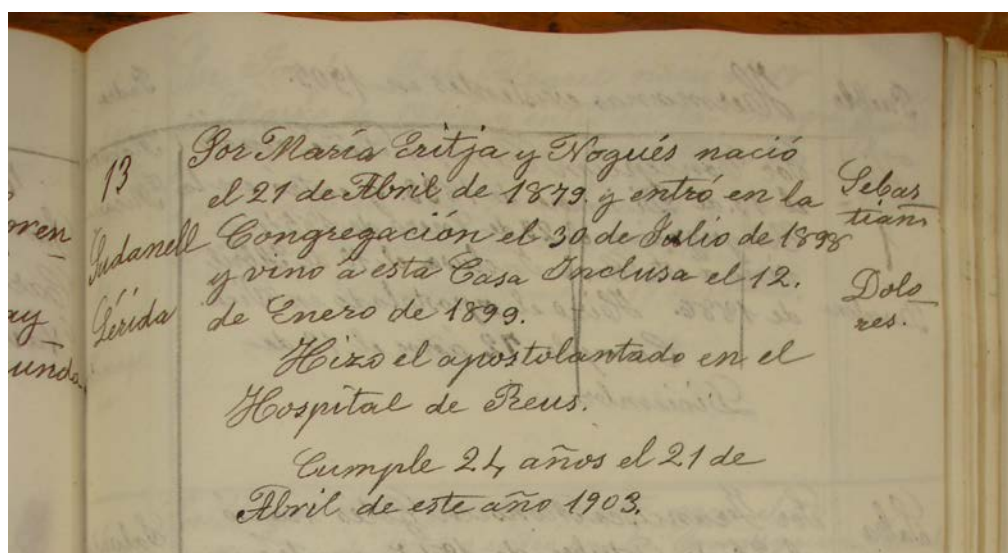 13
Sudanell
Lérida
Sor María Eritja y Nogués nació
el 21 de Abril de 1879. y entró en la
Congregación el 30 de Julio de 1898
y vino á esta Casa Inclusa el 12.
de Enero de 1899.
Hizo el apostolantado en el
Hospital de Reus.
Cumple 24 años el 21 de
Abril de este año 1903.
Sebas
tian
Dolo
res.